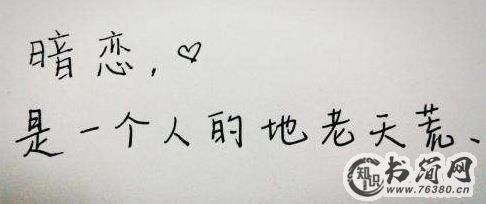 暗恋，♡
是一个人的地老天荒、
知识 书简网
www.76380.cn